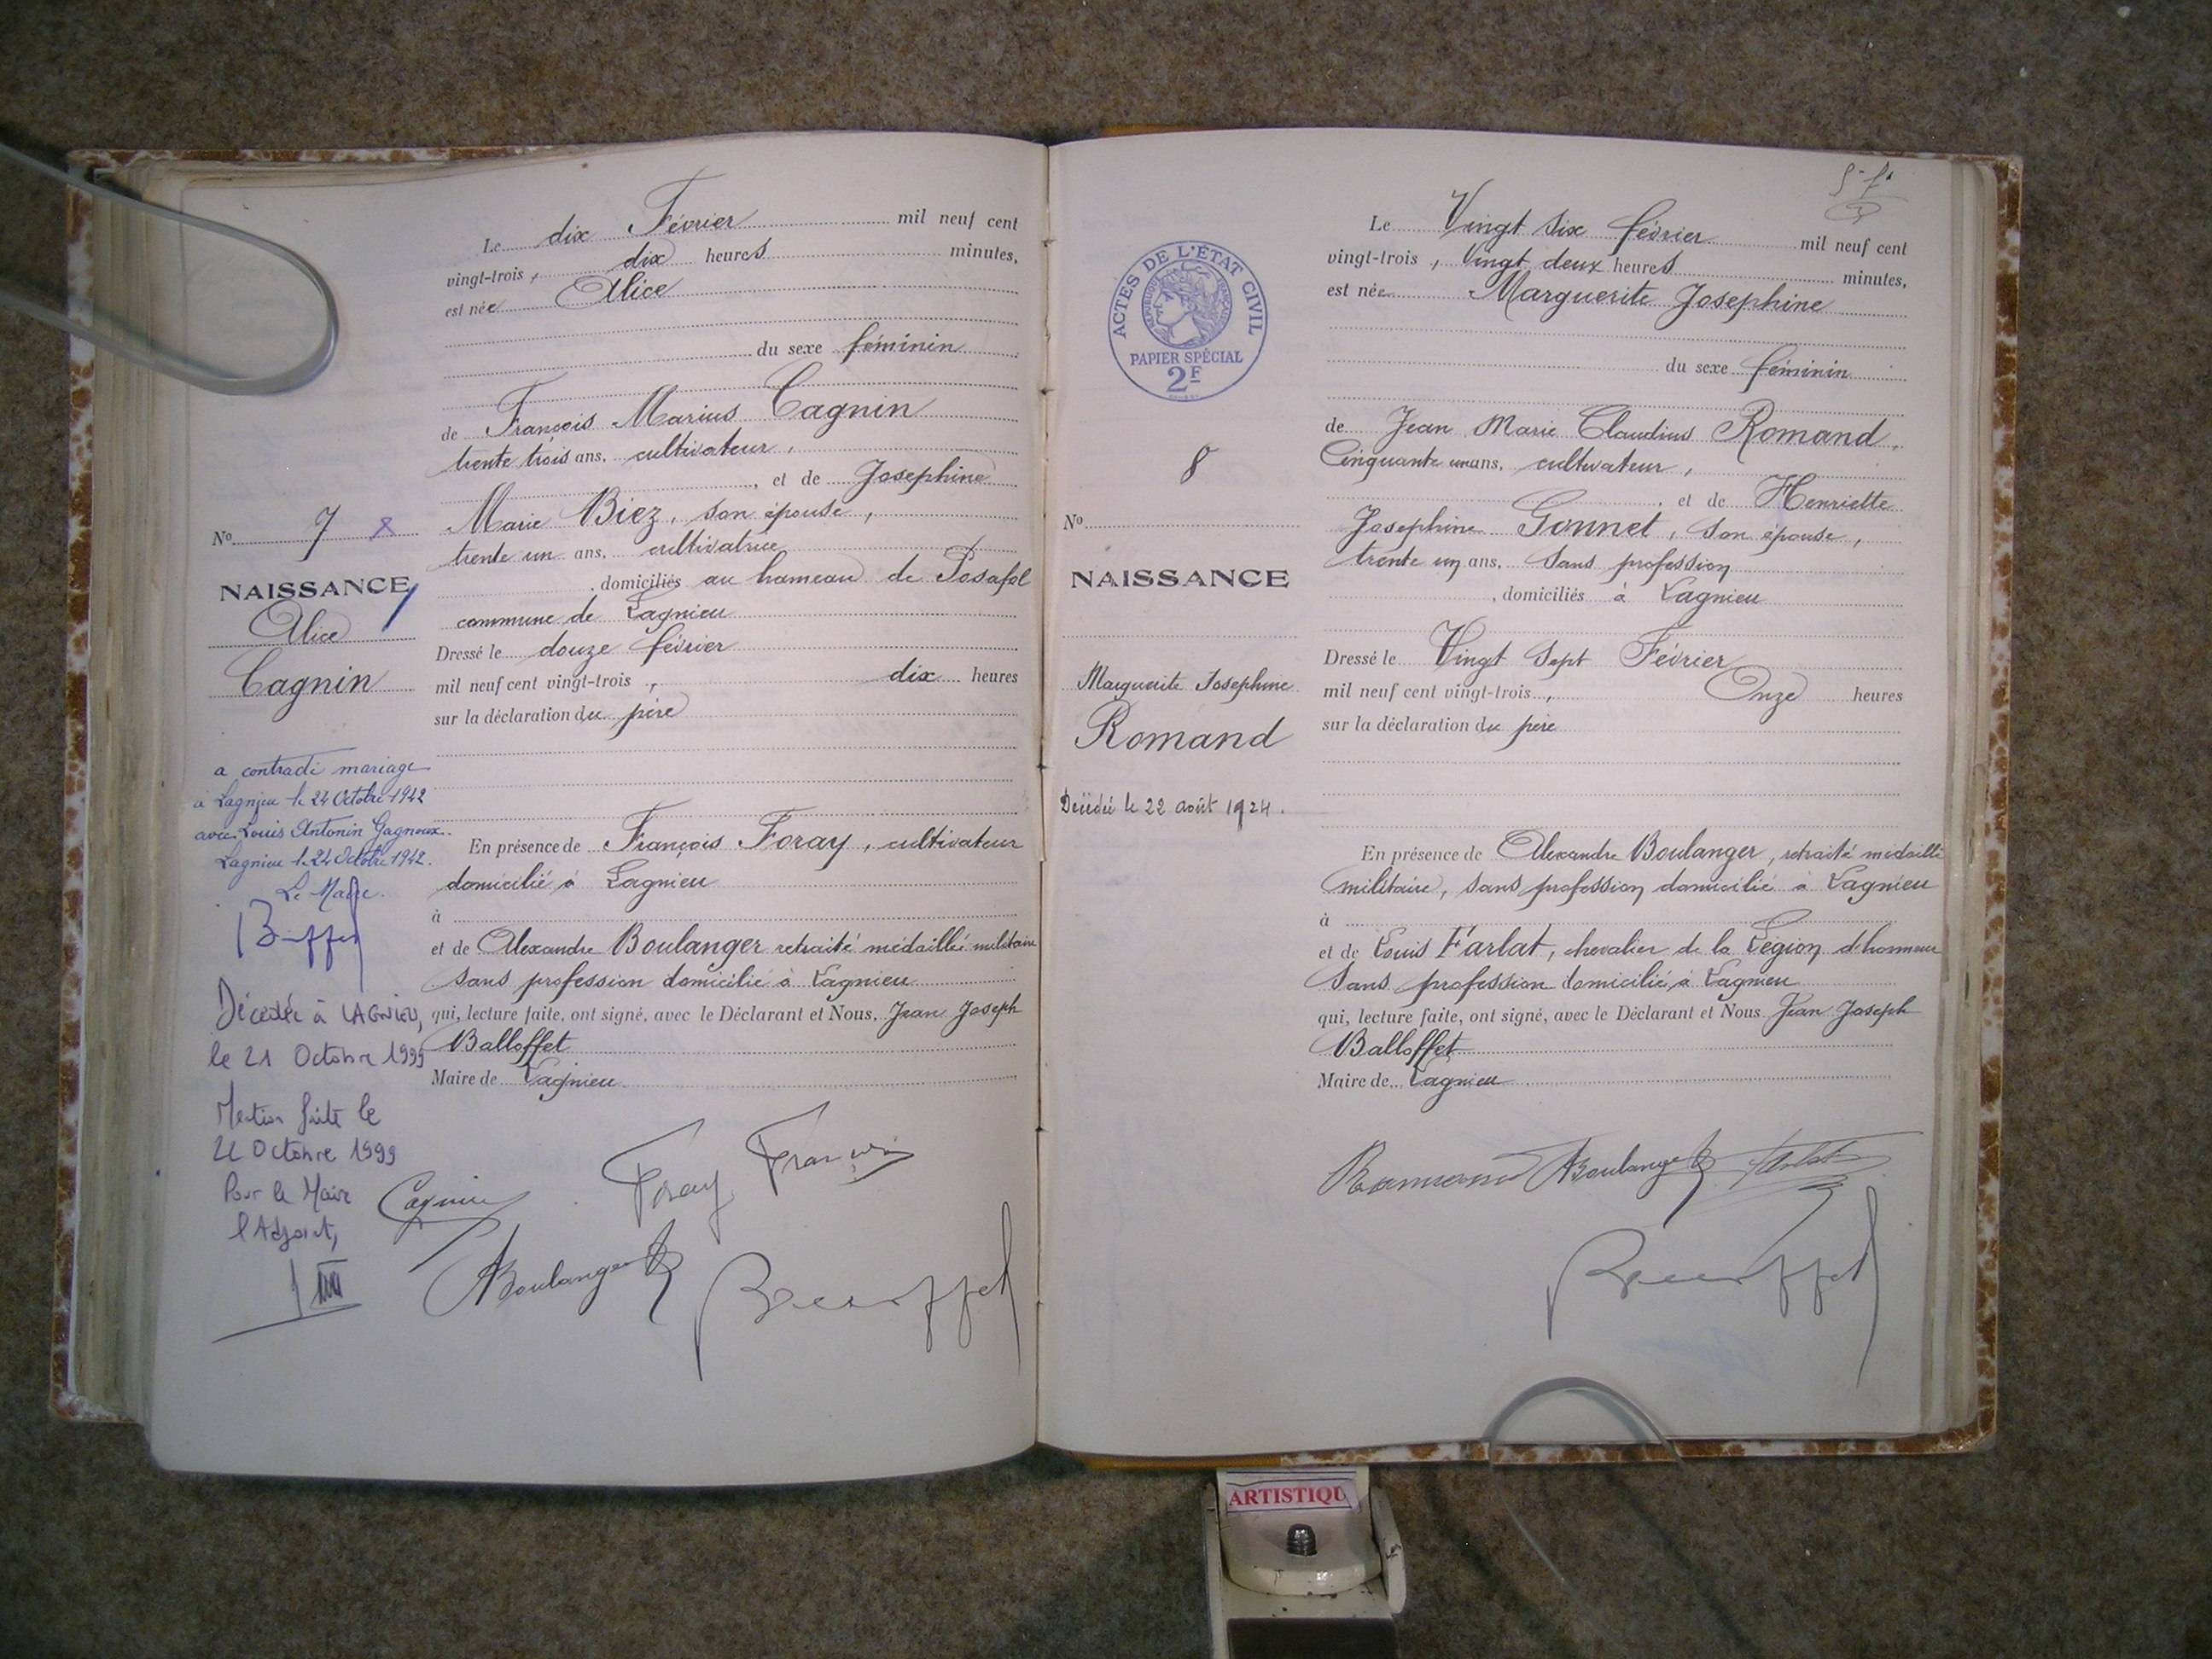 Le dix Février mil neuf cent
vingt-trois, dix heures minutes,
est née Alice
du sexe féminin
de François Marius Cagnin
trente trois ans, cultivateur,
, et de Josephine
Marie Biez, son épouse,
trente un ans, cultivatrice
, domiciliés au hameau de Posafol
commune de Lagnieu
Dressé le douze février
mil neuf cent vingt-trois, dix heures
sur la déclaration du père
En présence de François Foray, cultivateur
domicilié à Lagnieu
à
et de Alexandre Boulanger retraité médaillé militaire
sans profession domicilié à Lagnieu
qui, lecture faite, ont signé, avec le Déclarant et Nous, Jean Joseph
Balloffet
Maire de Lagnieu
Cagnin Foray François
ABoulanger
No 7 8
NAISSANCE
Alice
Cagnin
a contracté mariage
à Lagnieu le 24 Octobre 1942
avec Louis Antonin Gagneux.
Lagnieu le 24 Octobre 1942.
Le Maire.
Décédée à LAGNIEU,
le 21 Octobre 1999
Mention faite le
22 Octobre 1999
Pour le Maire
l'Adjoint,
ACTES DE L'ÉTAT CIVIL
RÉPUBLIQUE FRANÇAISE
PAPIER SPÉCIAL
2F
8
No
NAISSANCE
Marguerite Josephine
Romand
Décédé le 22 août 1924.
Le Vingt six février mil neuf cent
vingt-trois, Vingt deux heures minutes,
est née Marguerite Josephine
du sexe féminin
de Jean Marie Claudius Romand,
Cinquante un ans, cultivateur,
, et de Henriette
Josephine Gonnet, son épouse,
trente un ans, sans profession
, domiciliés à Lagnieu
Dressé le Vingt Sept Février
mil neuf cent vingt-trois, Onze heures
sur la déclaration du père
En présence de Alexandre Boulanger, retraité médaillé
militaire, sans profession domicilié à Lagnieu
à
et de Louis Farlat, chevalier de la Légion d'honneur
Sans profession domicilié à Lagnieu
qui, lecture faite, ont signé, avec le Déclarant et Nous Jean Joseph
Balloffet
Maire de Lagnieu
Romand ABoulanger Farlat
ARTISTIQU